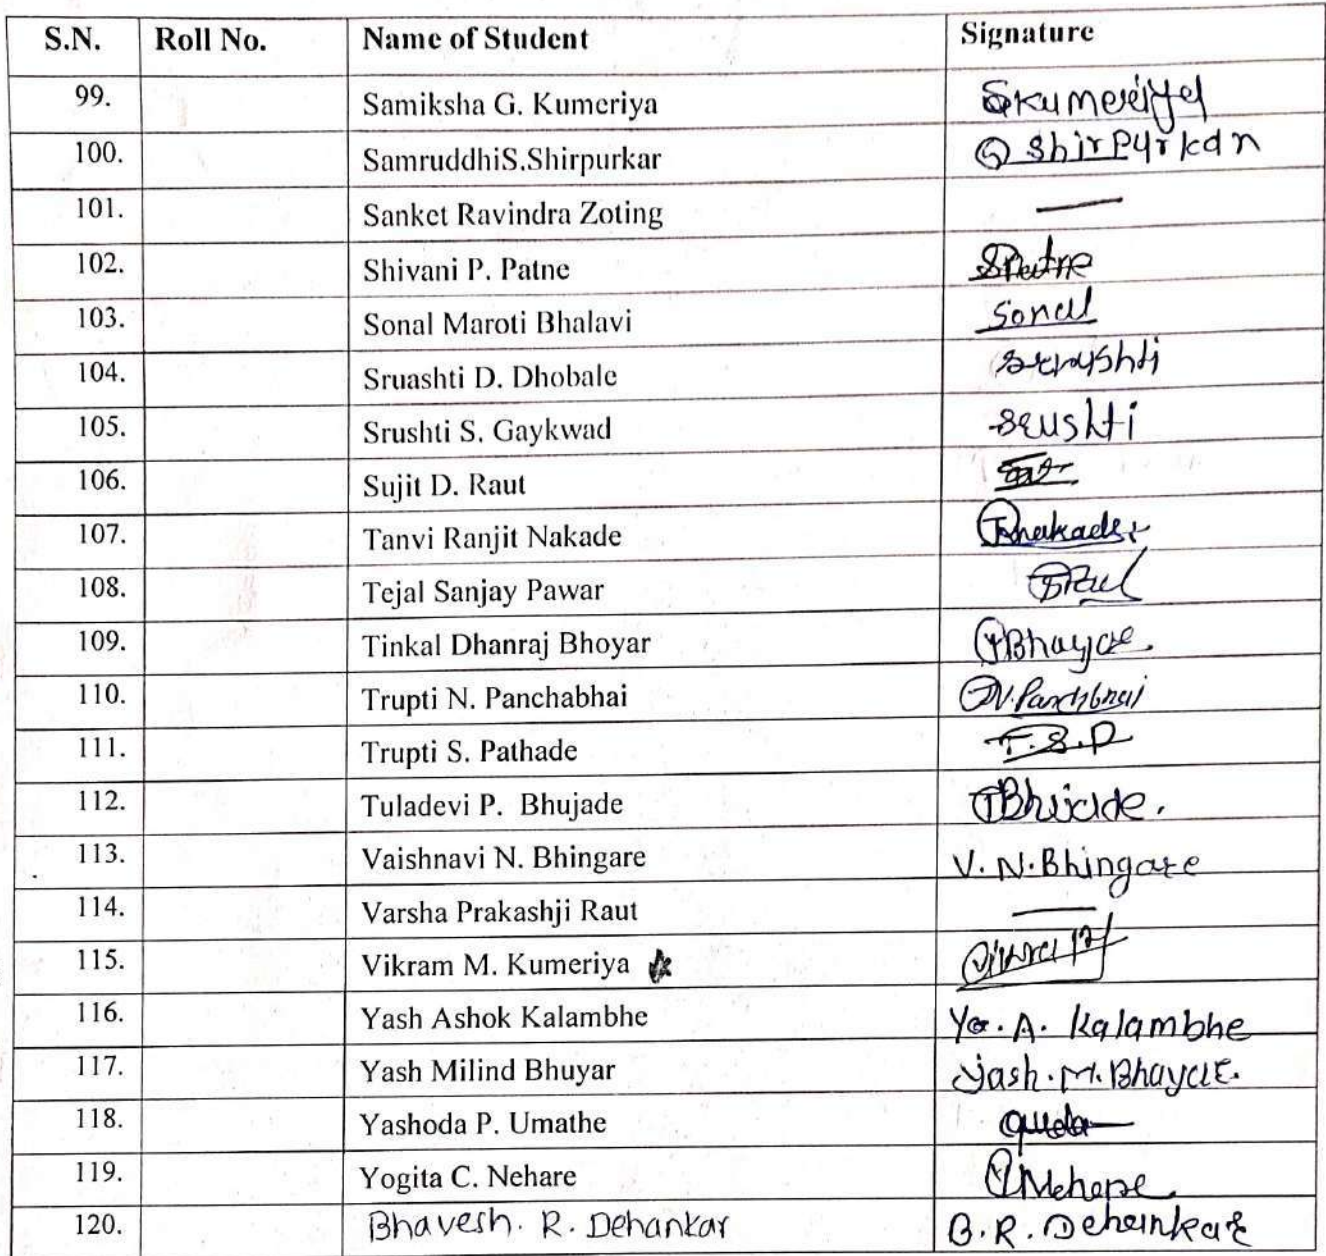 S.N. Roll No. Name of Student Signature
99. Samiksha G. Kumeriya Skumeriya
100. SamruddhiS.Shirpurkar S Shirpurkar
101. Sanket Ravindra Zoting —
102. Shivani P. Patne SPatne
103. Sonal Maroti Bhalavi Sonal
104. Sruashti D. Dhobale
105. Srushti S. Gaykwad Srushti
106. Sujit D. Raut
107. Tanvi Ranjit Nakade
108. Tejal Sanjay Pawar
109. Tinkal Dhanraj Bhoyar
110. Trupti N. Panchabhai
111. Trupti S. Pathade T.S.P
112. Tuladevi P. Bhujade
113. Vaishnavi N. Bhingare V. N. Bhingare
114. Varsha Prakashji Raut —
115. Vikram M. Kumeriya
116. Yash Ashok Kalambhe Ya. A. Kalambhe
117. Yash Milind Bhuyar Yash. M. Bhuyar.
118. Yashoda P. Umathe
119. Yogita C. Nehare YNehare
120. Bhavesh. R. Dehankar B. R. Dehankar